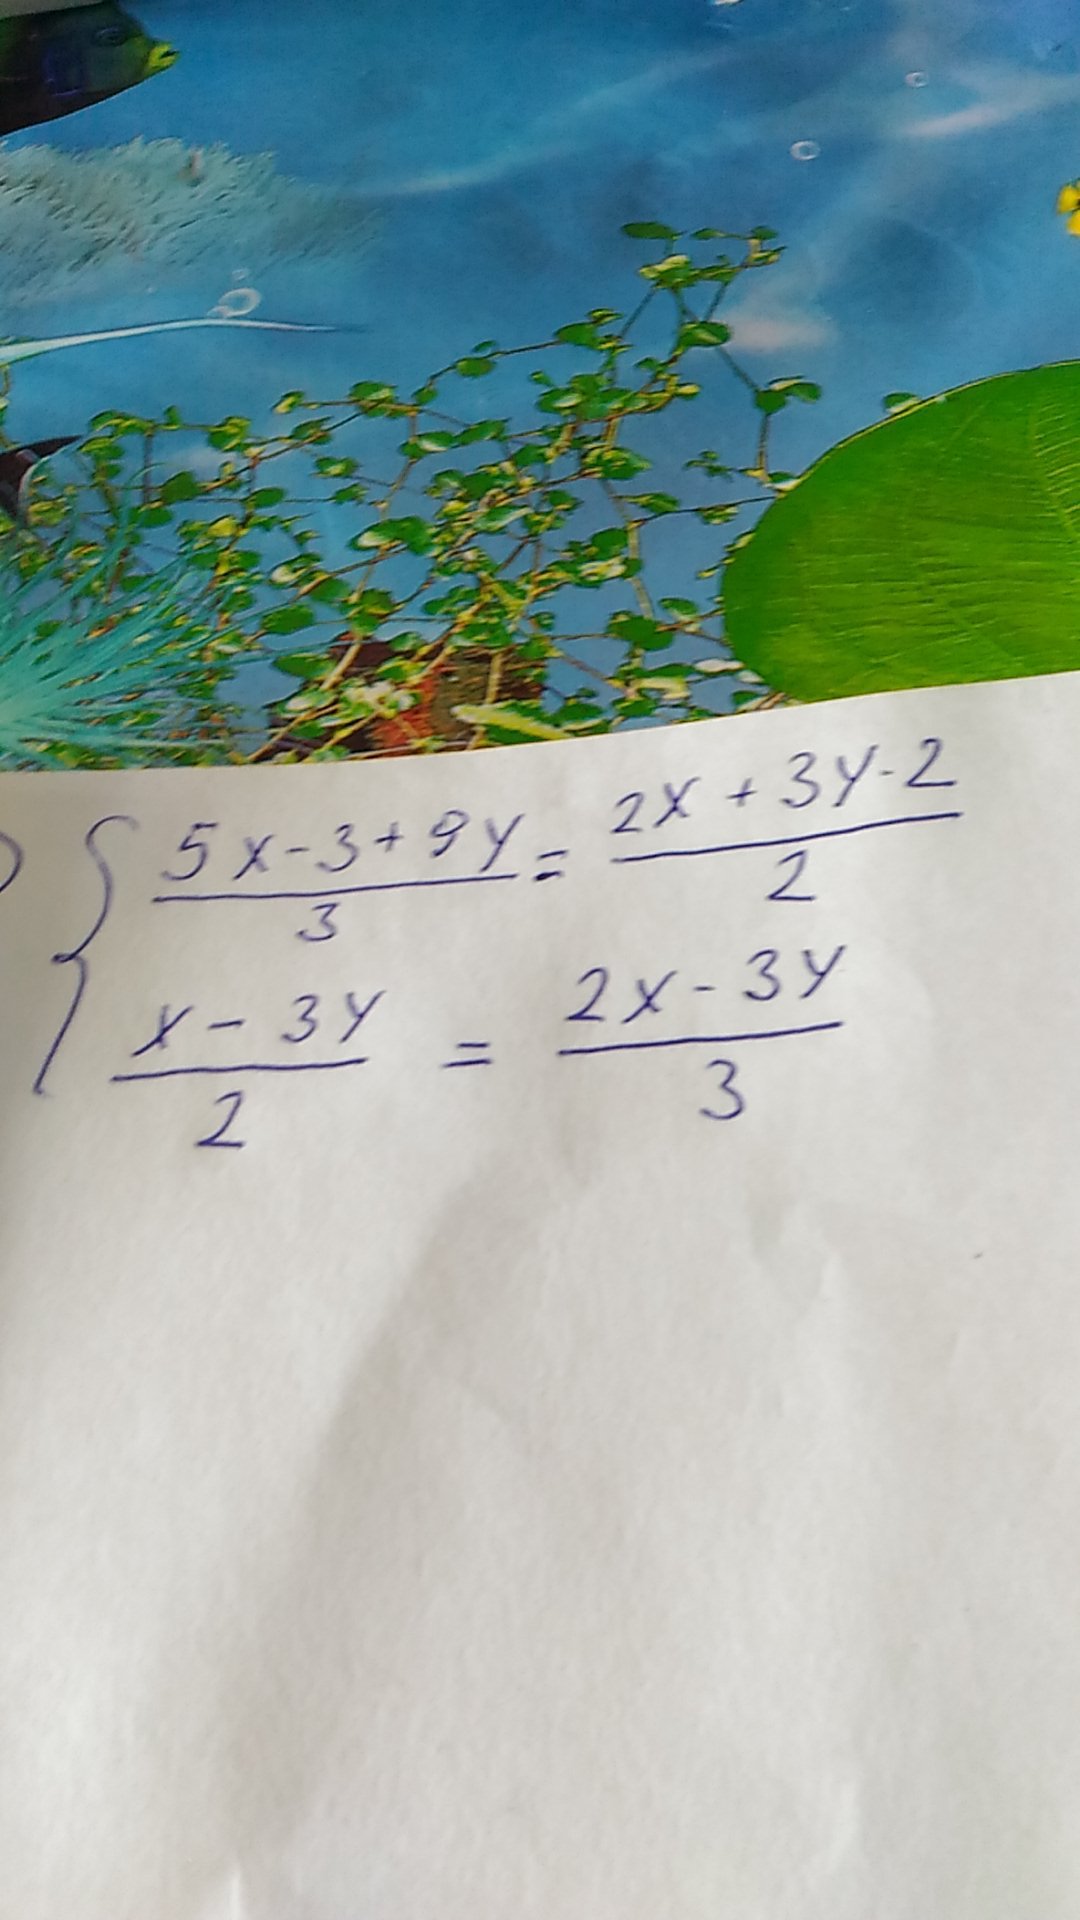 ) { (5x-3+9y)/3 = (2x+3y-2)/2
(x-3y)/2 = (2x-3y)/3